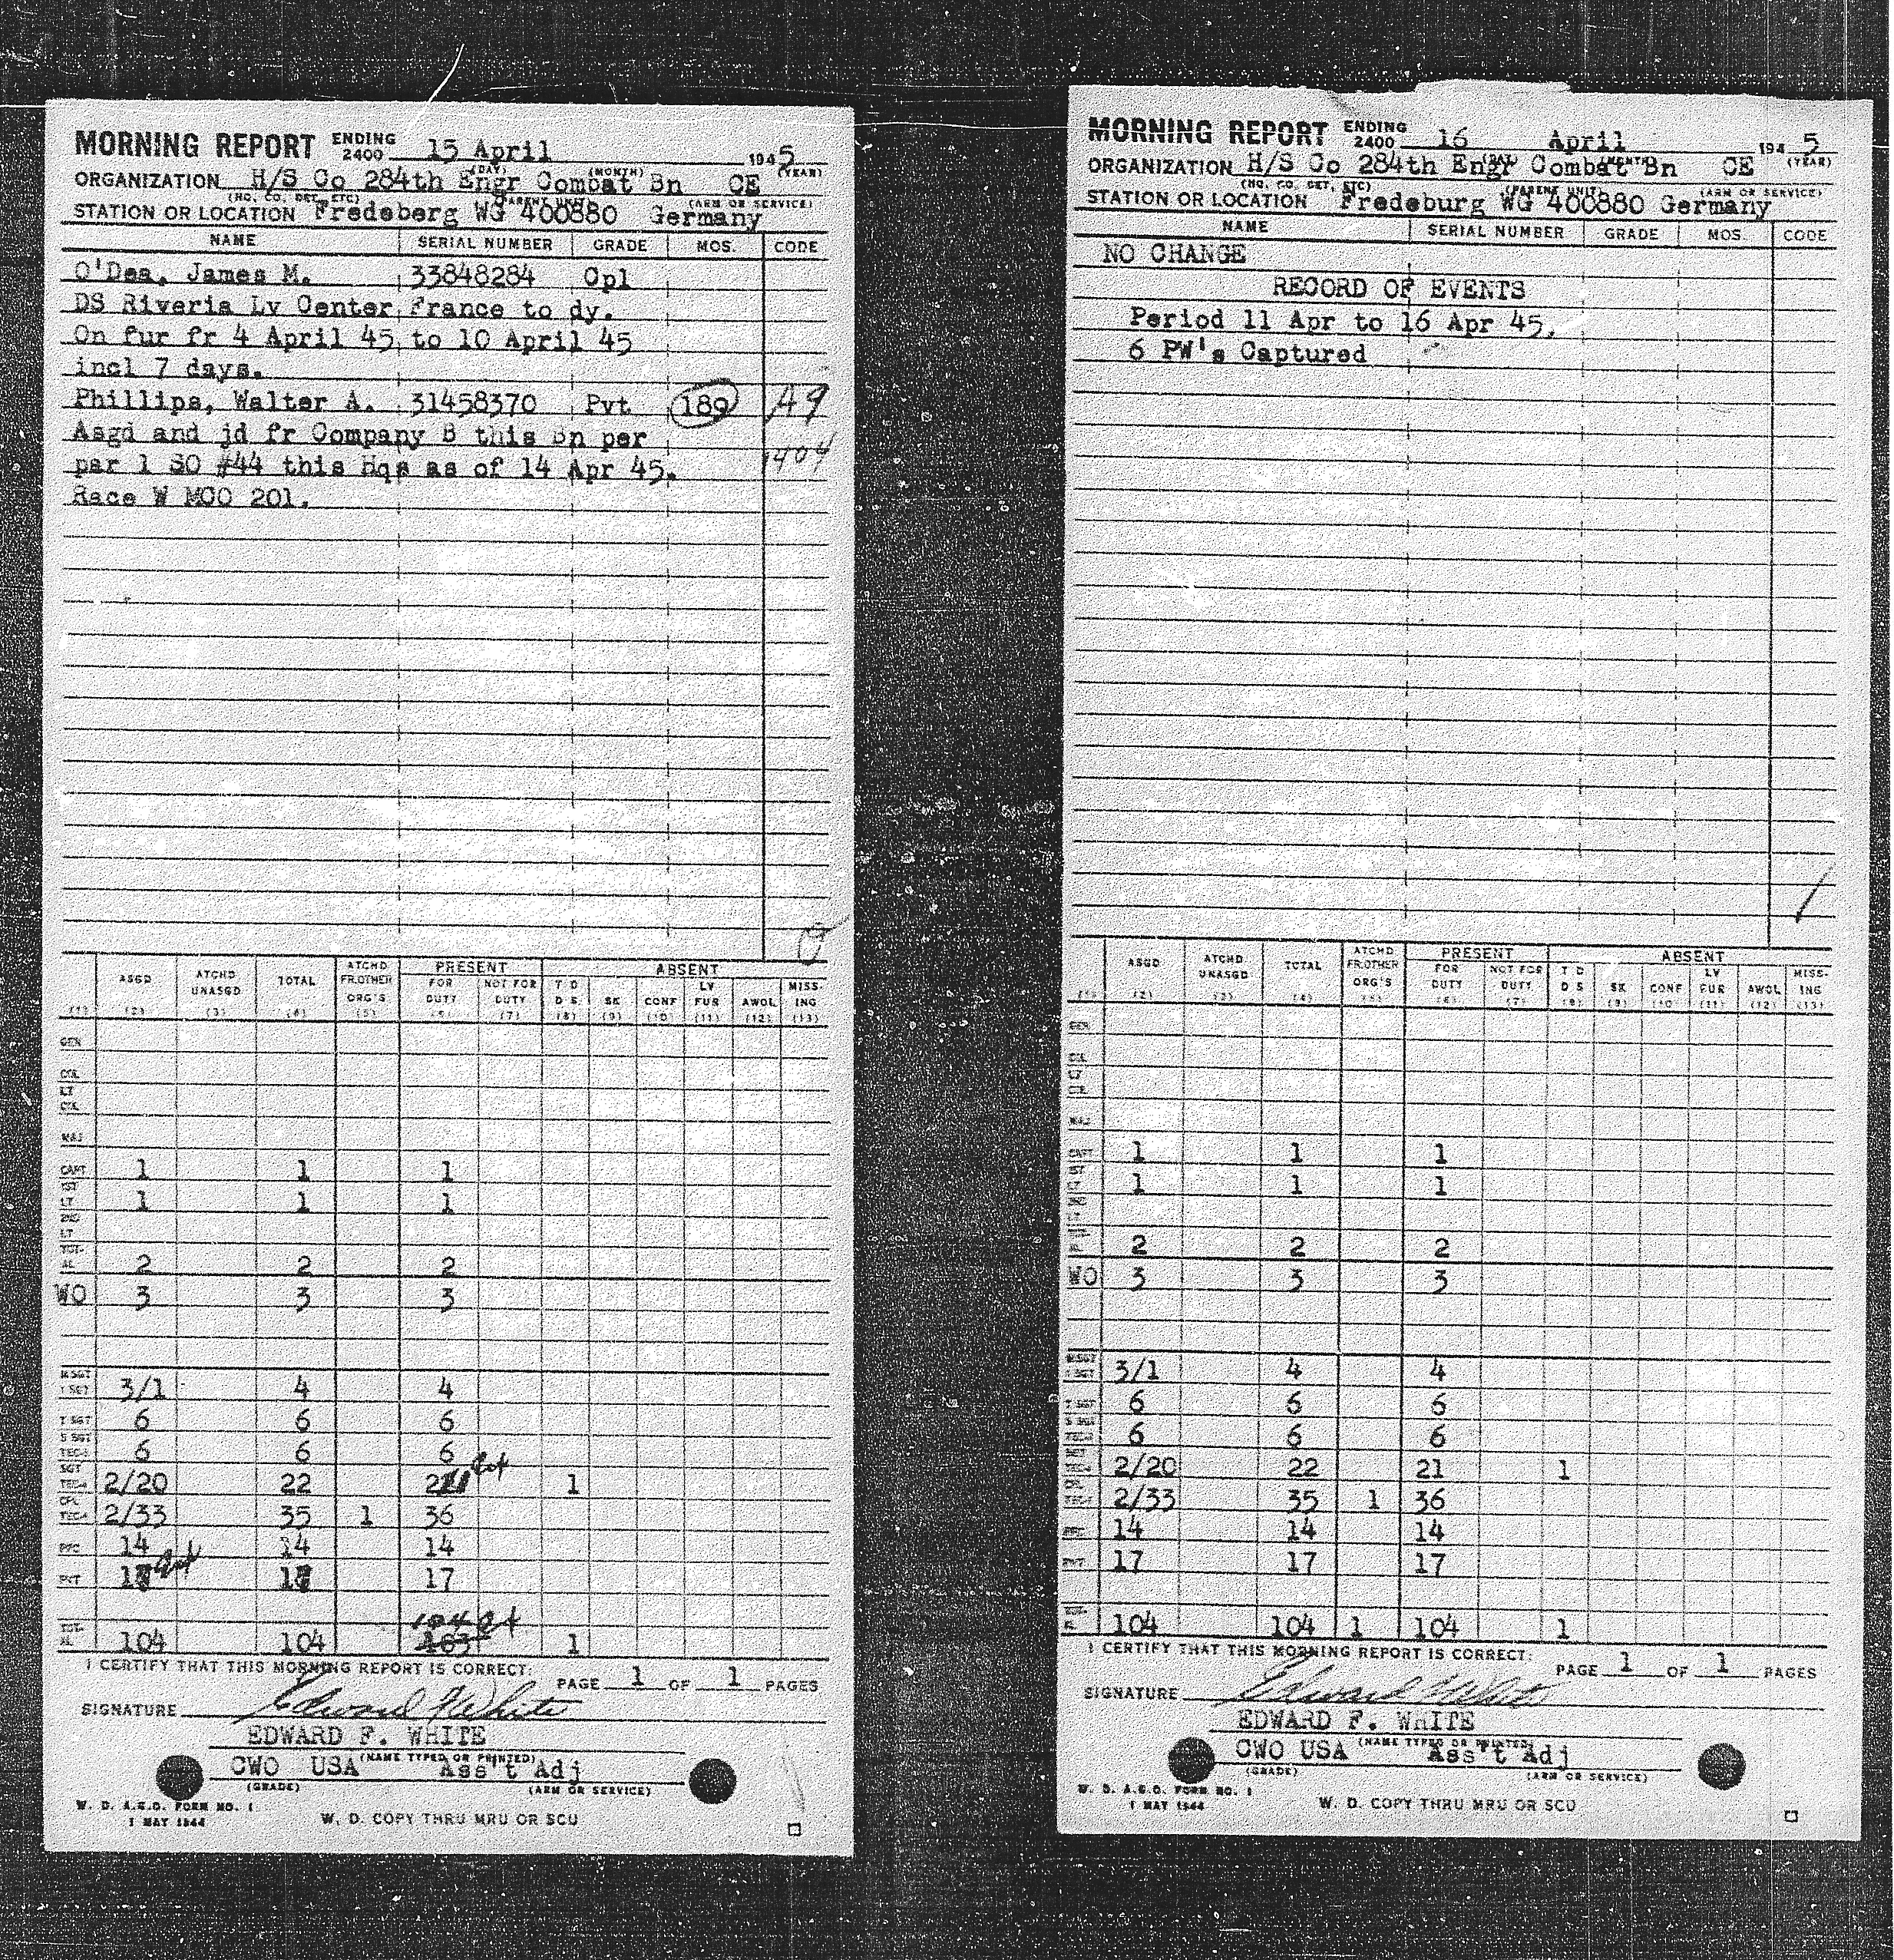 MORNING REPORT ENDING 2400 15 April 1945
(DAY) (MONTH) (YEAR)
ORGANIZATION H/S Co 284th Engr Combat Bn CE
(HQ. CO. DET. ETC) (PARENT UNIT) (ARM OR SERVICE)
STATION OR LOCATION Fredeberg WG 400880 Germany
NAME SERIAL NUMBER GRADE MOS. CODE
O'Dea, James M. 33848284 Cpl
DS Riveria Lv Center France to dy.
On fur fr 4 April 45 to 10 April 45
incl 7 days.
Phillips, Walter A. 31458370 Pvt 189 A9
Asgd and jd fr Company B this Bn per
par 1 SO #44 this Hqs as of 14 Apr 45. 1404
Race W MCO 201.
ASGD ATCHD UNASGD TOTAL ATCHD FR.OTHER ORG'S PRESENT FOR DUTY NOT FOR DUTY ABSENT T D D S SK CONF LV FUR AWOL MISS-ING
(1) (2) (3) (4) (5) (6) (7) (8) (9) (10) (11) (12) (13)
GEN
COL
LT COL
MAJ
CAPT 1 1 1
1ST LT 1 1 1
2ND LT
TOT-AL 2 2 2
WO 3 3 3
M SGT 1 SGT 3/1 4 4
T SGT 6 6 6
S SGT TEC-3 6 6 6
SGT TEC-4 2/20 22 21 1
CPL TEC-5 2/33 35 1 36
PFC 14 14 14
PVT 17 17 17
104
TOT-AL 104 104 103 1
I CERTIFY THAT THIS MORNING REPORT IS CORRECT: PAGE 1 OF 1 PAGES
SIGNATURE Edward F White
EDWARD F. WHITE
(NAME TYPED OR PRINTED)
CWO USA Ass't Adj
(GRADE) (ARM OR SERVICE)
W. D. A.G.O. FORM NO. 1
1 MAY 1944 W. D. COPY THRU MRU OR SCU
MORNING REPORT ENDING 2400 16 April 1945
(DAY) (MONTH) (YEAR)
ORGANIZATION H/S Co 284th Engr Combat Bn CE
(HQ. CO. DET. ETC) (PARENT UNIT) (ARM OR SERVICE)
STATION OR LOCATION Fredeburg WG 400880 Germany
NAME SERIAL NUMBER GRADE MOS. CODE
NO CHANGE
RECORD OF EVENTS
Period 11 Apr to 16 Apr 45.
6 PW's Captured
ASGD ATCHD UNASGD TOTAL ATCHD FR.OTHER ORG'S PRESENT FOR DUTY NOT FOR DUTY ABSENT T D D S SK CONF LV FUR AWOL MISS-ING
(1) (2) (3) (4) (5) (6) (7) (8) (9) (10) (11) (12) (13)
GEN
COL
LT COL
MAJ
CAPT 1 1 1
1ST LT 1 1 1
2ND LT
TOT-AL 2 2 2
WO 3 3 3
M SGT 1 SGT 3/1 4 4
T SGT 6 6 6
S SGT TEC-3 6 6 6
SGT TEC-4 2/20 22 21 1
CPL TEC-5 2/33 35 1 36
PFC 14 14 14
PVT 17 17 17
TOT-AL 104 104 1 104 1
I CERTIFY THAT THIS MORNING REPORT IS CORRECT: PAGE 1 OF 1 PAGES
SIGNATURE Edward F White
EDWARD F. WHITE
(NAME TYPED OR PRINTED)
CWO USA Ass't Adj
(GRADE) (ARM OR SERVICE)
W. D. A.G.O. FORM NO. 1
1 MAY 1944 W. D. COPY THRU MRU OR SCU